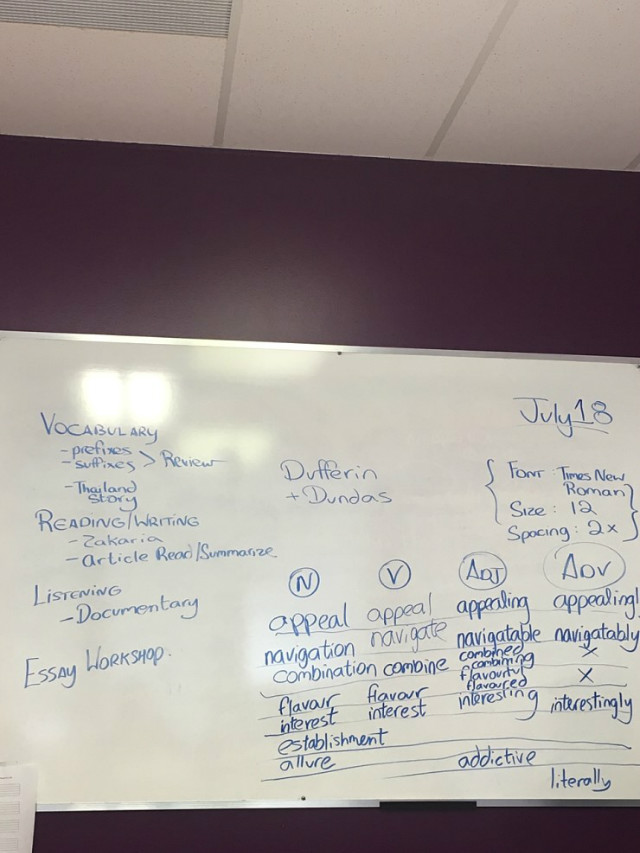 July 18
VOCABULARY
- prefixes
- suffixes > Review
- Thailand
Story
READING/WRITING
- Zakaria
- Article Read/Summarize
LISTENING
- Documentary
ESSAY WORKSHOP.
Dufferin
+ Dundas
{ FONT: Times New
Roman }
Size: 12
Spacing: 2x
N V ADJ ADV
appeal appeal appealing appealingl
navigation navigate navigatable navigatably
combination combine combined x
combining
flavour flavour flavourful x
flavoured
interest interest interesting interestingly
establishment
allure addictive
literally